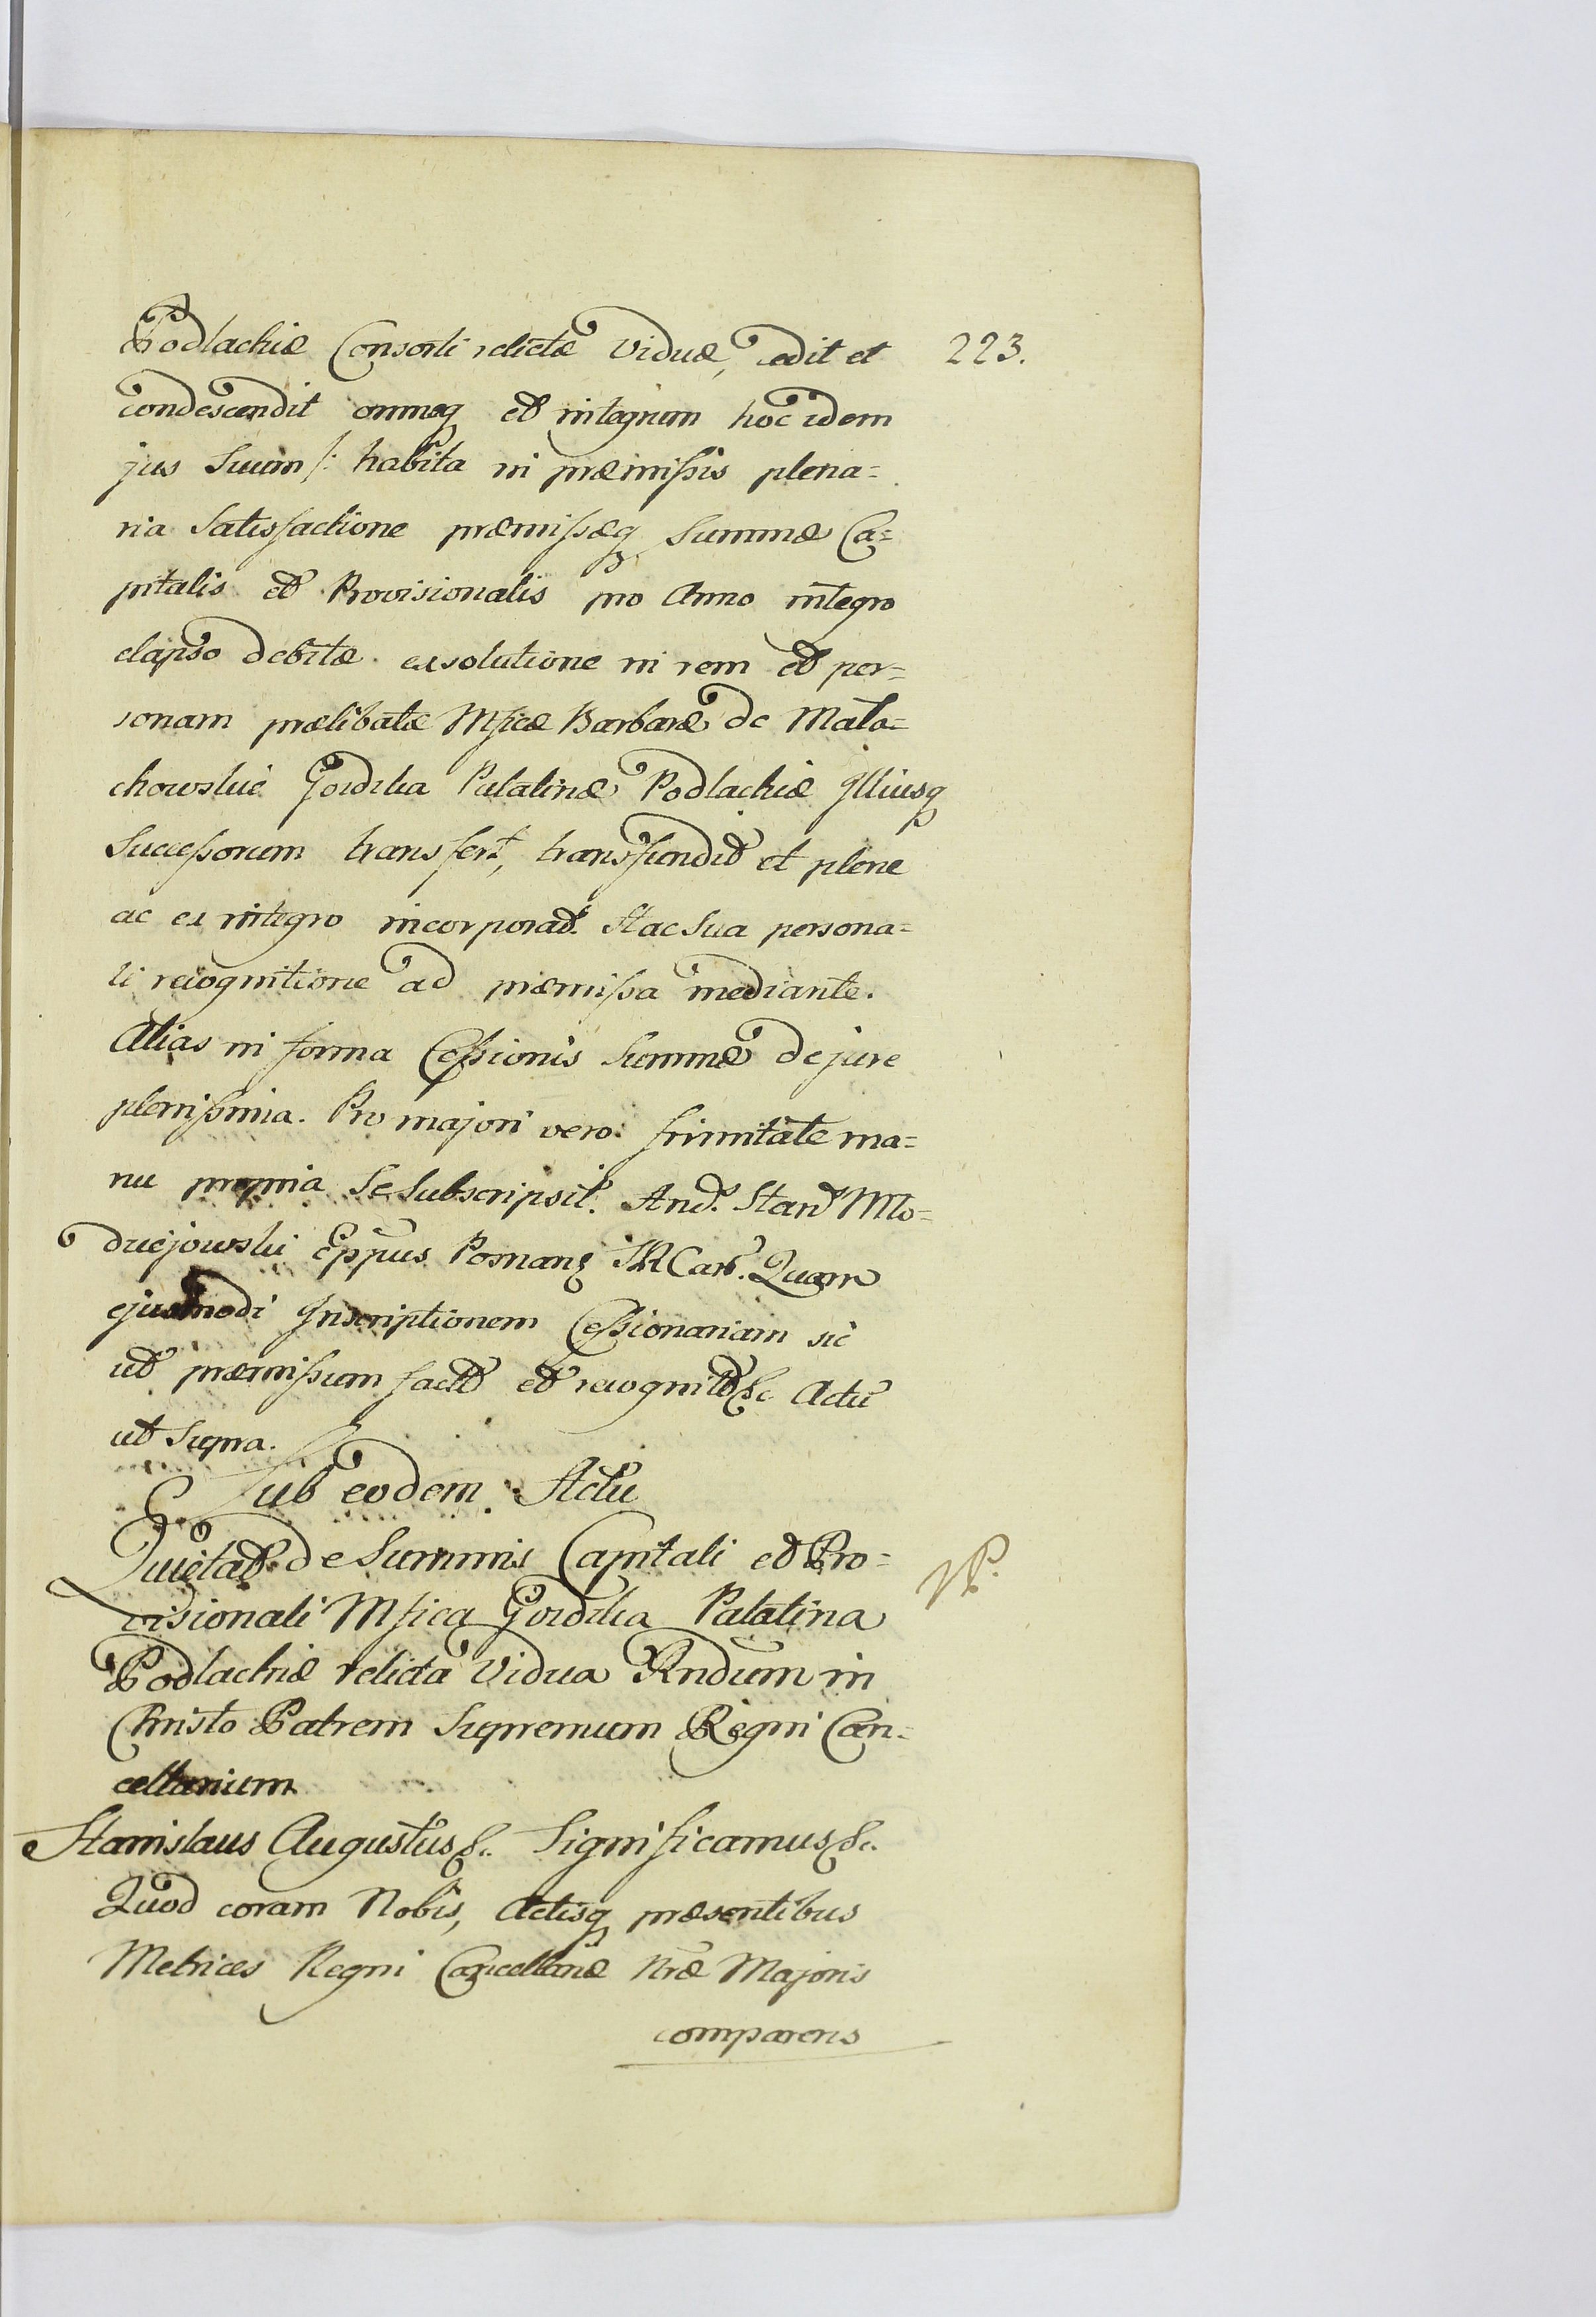 Podlachiæ Consorti relictæ Viduæ, cedit et
223.
condescendit omneq et integrum hoc idem
jus Suum /: habita in præmissis plena=
ria Satisfactione præmissæq Summæ Ca=
pitalis et Provisionalis pro Anno integro
elapso debitæ exsolutione in rem et per=
sonam prælibatæ Mficæ Barbaræ de Mala=
chowskie Gozdzka Palatinæ Podlachiæ Illiusq
Successorum transfert, transfundit et plene
ac ex integro incorporat. Hac Sua persona=
li recognitione ad præmissa mediante.
Alias in forma Cessionis Summæ de jure
plenissima. Pro majori vero firmitate ma=
nu propria Se Subscripsit. And. Stan Mło=
dziejowski Eppus Posnan SRCanc. Quam
ejusmodi Inscriptionem Cessionariam sic
ut præmissum fact et recognit &c Actu
ut Supra.
Sub eodem Actu
Quietat de Summis Capitali et Pro=
visionali Mfica Gozdzka Palatina
NP.
Podlachiæ relicta Vidua Rndum in
Christo Patrem Supremum Regni Can=
cellarium
Stanislaus Augustus &c. Significamus &c.
Quod coram Nobis, Actisq præsentibus
Metrices Regni Cancellariæ Nræ Majoris
comparens